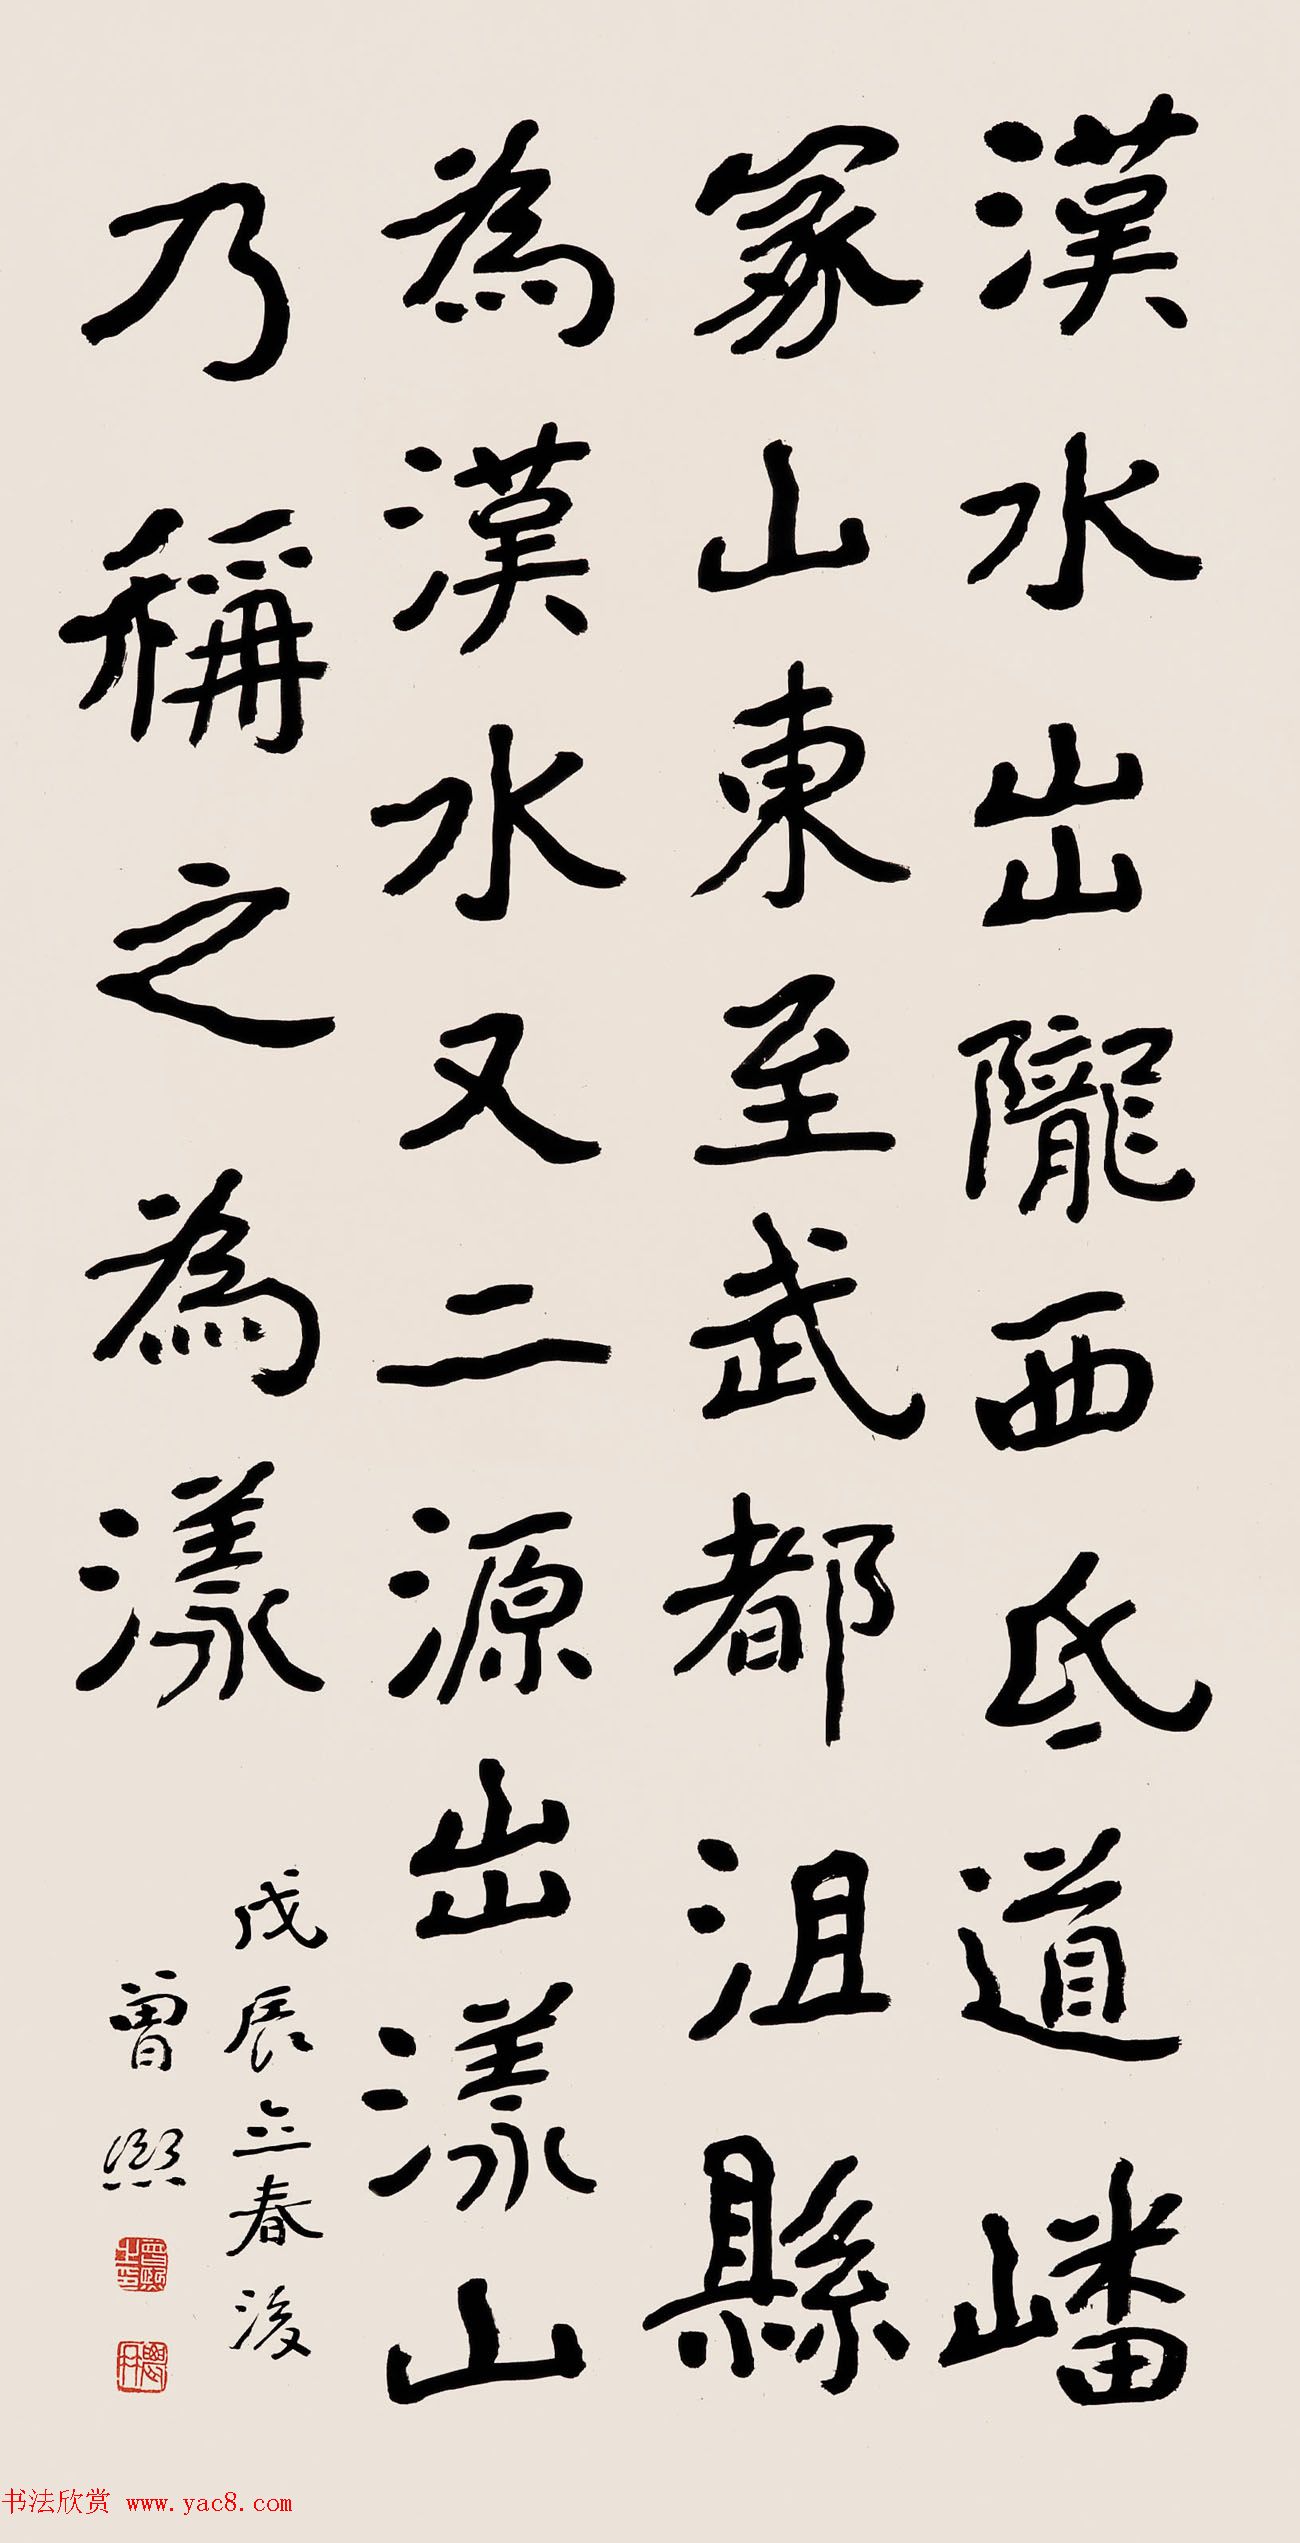 漢水出隴西氐道嶓
冢山東至武都沮縣
為漢水又二源出漾山
乃稱之為漾
戊辰立春後
曾熙
曾熙之印
農髯
书法欣赏 www.yac8.com